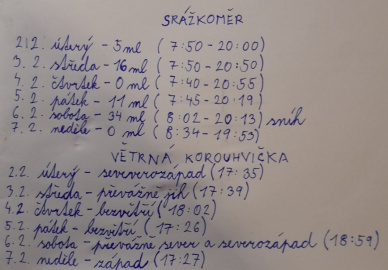 SRÁŽKOMĚR
2.2. úterý - 5 ml (7:50 - 20:00)
3.2. středa - 16 ml (7:50 - 20:50)
4.2. čtvrtek - 0 ml (7:40 - 20:55)
5.2. pátek - 11 ml (7:45 - 20:19)
6.2. sobota - 34 ml (8:02 - 20:13) sníh
7.2. neděle - 0 ml (8:34 - 19:53)
VĚTRNÁ KOROUHVIČKA
2.2. úterý - severozápad (17:35)
3.2. středa - převážně jih (17:39)
4.2. čtvrtek - bezvětří (18:02)
5.2. pátek - bezvětří (17:26)
6.2. sobota - převážně sever a severozápad (18:59)
7.2. neděle - západ (17:27)